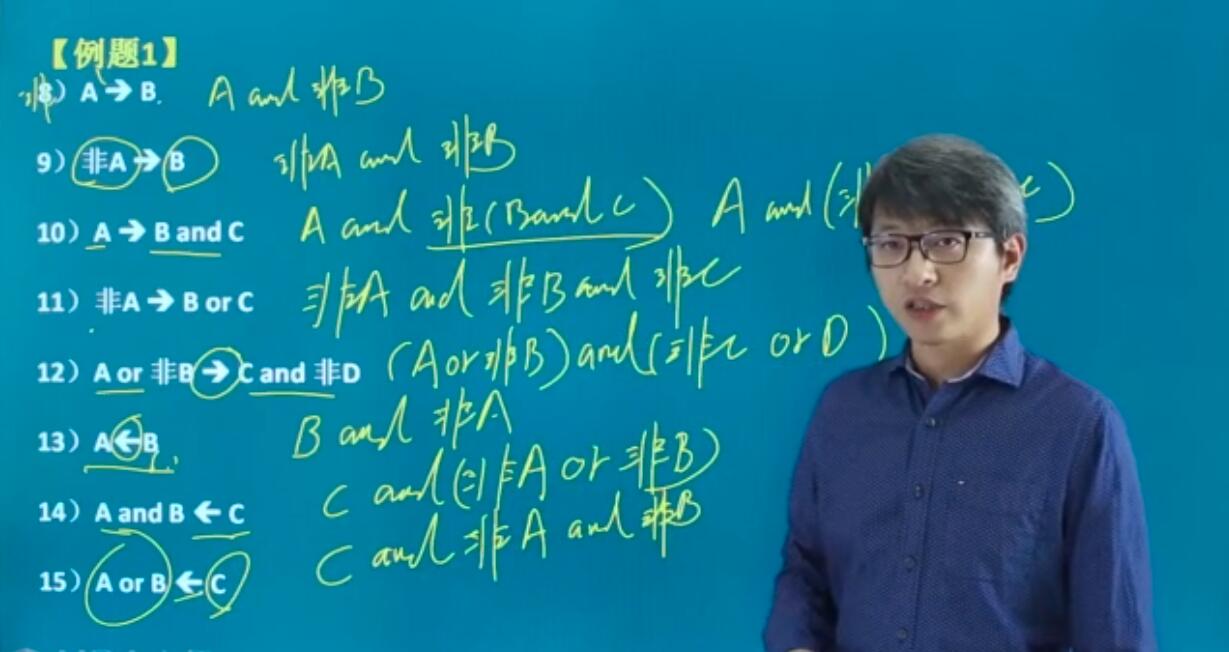 【例题1】
8）A→B A and 非B
9）非A→B 非A and 非B
10）A→B and C A and 非(B and C) A and (非
11）非A→B or C 非A and 非B and 非C
12）A or 非B→C and 非D (A or 非B) and (非C or D)
13）A←B B and 非A
14）A and B←C C and (非A or 非B)
15）A or B←C C and 非A and 非B